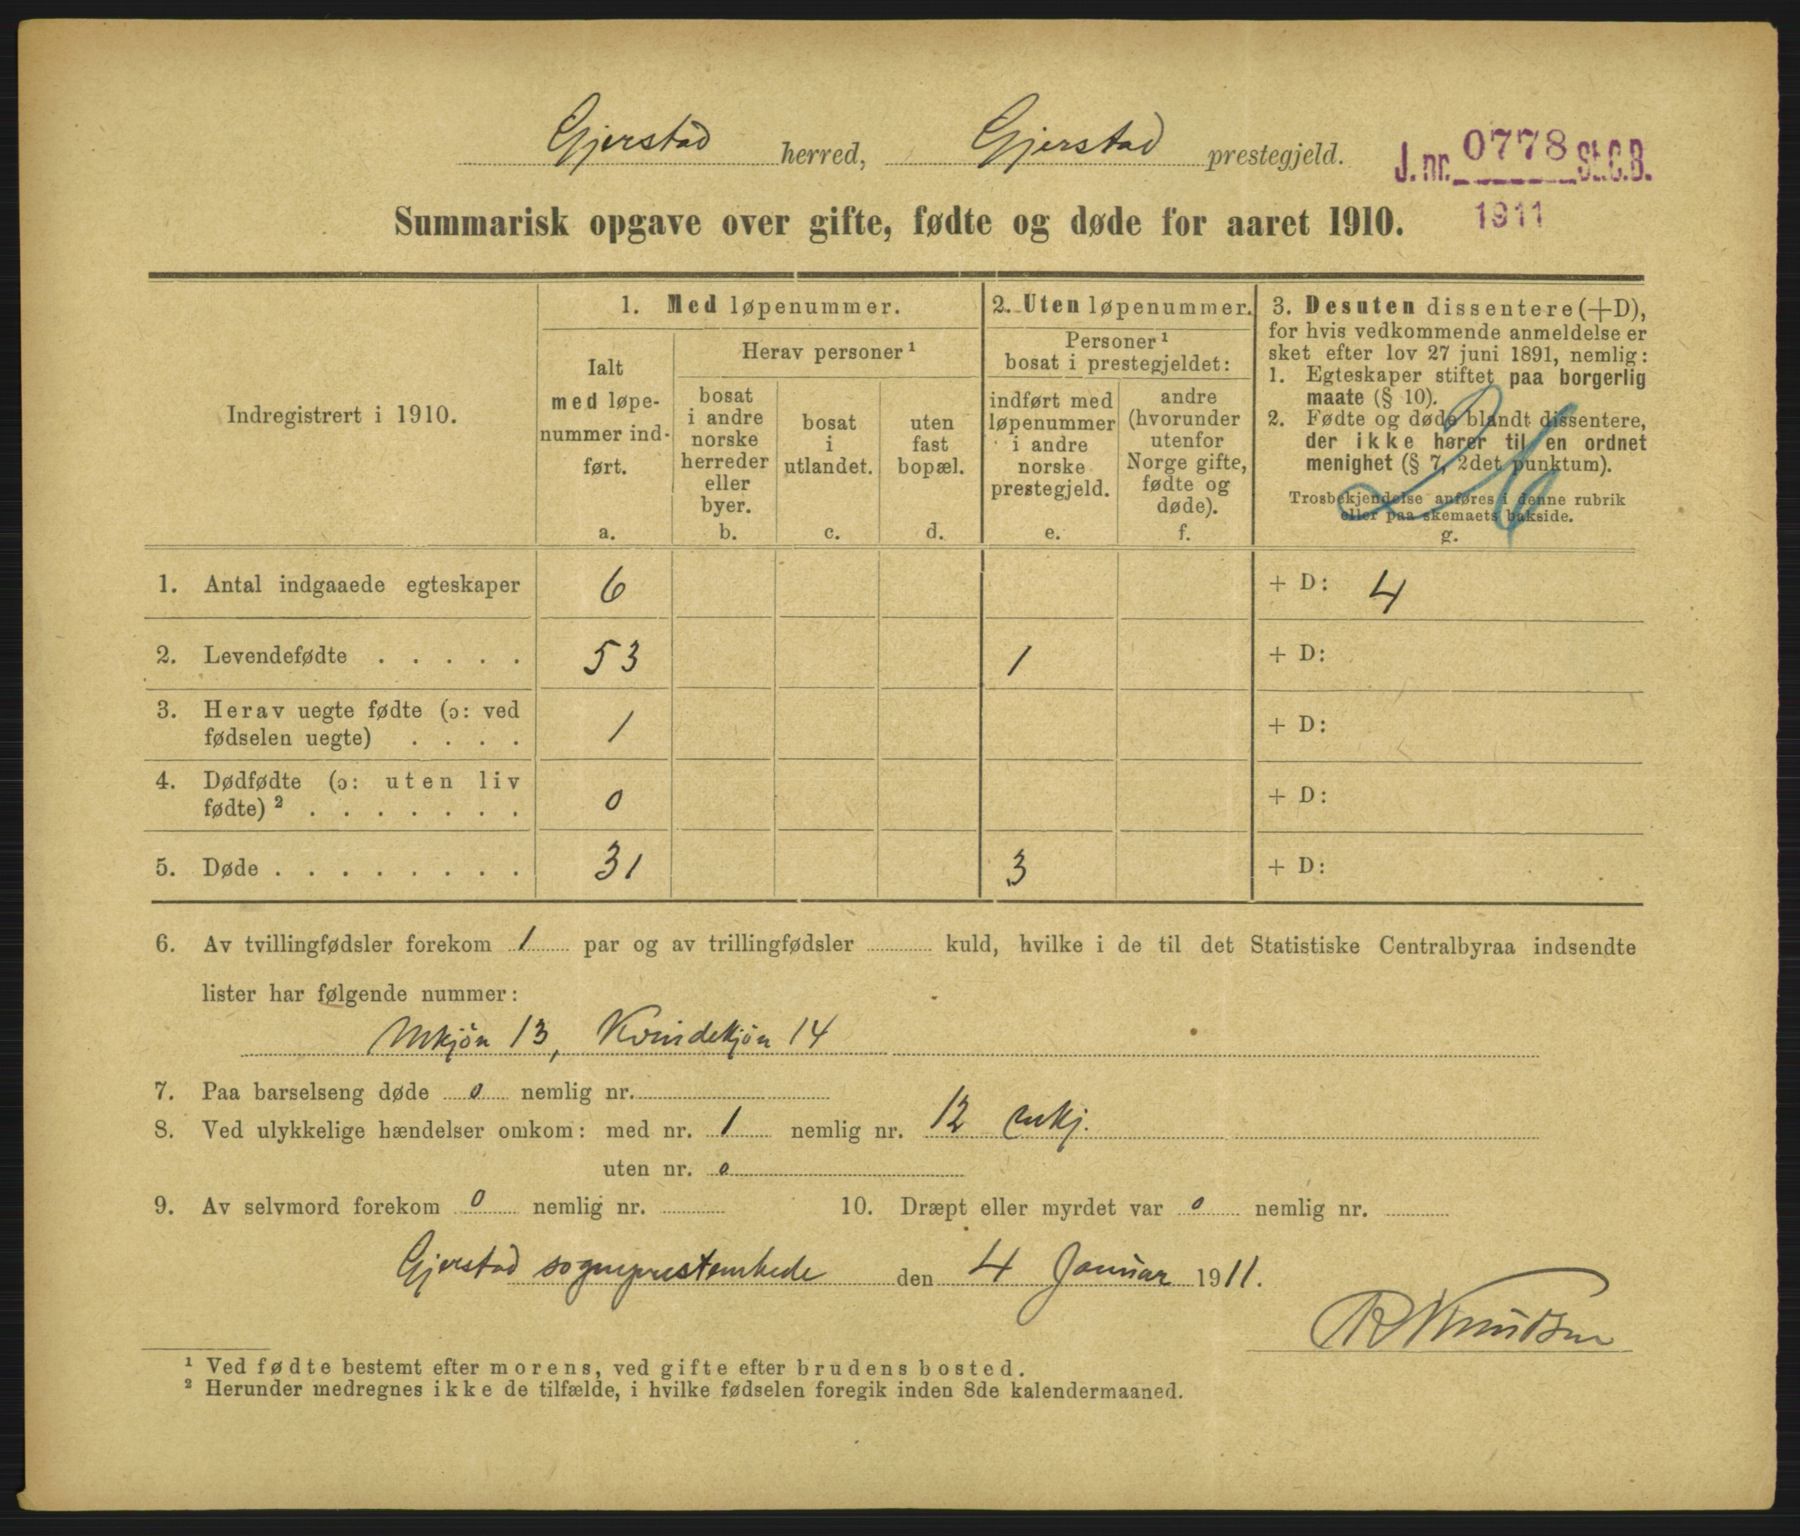 Gjerstad herred, Gjerstad prestegjeld.
J. nr. 0778 St.C.B.
1911
Summarisk opgave over gifte, fødte og døde for aaret 1910.
Indregistrert i 1910.
1. Med løpenummer.
Ialt
med løpe-
nummer ind-
ført.
a.
Herav personer ¹
bosat
i andre
norske
herreder
eller
byer.
b.
bosat
i
utlandet.
c.
uten
fast
bopæl.
d.
2. Uten løpenummer.
Personer ¹
bosat i prestegjeldet:
indført med
løpenummer
i andre
norske
prestegjeld.
e.
andre
(hvorunder
utenfor
Norge gifte,
fødte og
døde).
f.
3. Desuten dissentere (+D),
for hvis vedkommende anmeldelse er
sket efter lov 27 juni 1891, nemlig:
1. Egteskaper stiftet paa borgerlig
maate (§ 10).
2. Fødte og døde blandt dissentere,
der ikke hører til en ordnet
menighet (§ 7, 2det punktum).
Trosbekjendelse anføres i denne rubrik
eller paa skemaets bakside.
g.
26
1. Antal indgaaede egteskaper 6 + D: 4
2. Levendefødte . . . . . 53 1 + D:
3. Herav uegte fødte (ɔ: ved
fødselen uegte) . . . . 1 + D:
4. Dødfødte (ɔ: uten liv
fødte) ² . . . . . . . 0 + D:
5. Døde . . . . . . . . 31 3 + D:
6. Av tvillingfødsler forekom 1 par og av trillingfødsler kuld, hvilke i de til det Statistiske Centralbyraa indsendte
lister har følgende nummer:
Mkjøn 13, Kvindekjøn 14
7. Paa barselseng døde 0 nemlig nr.
8. Ved ulykkelige hændelser omkom: med nr. 1 nemlig nr. 12 mkj.
uten nr. 0
9. Av selvmord forekom 0 nemlig nr. 10. Dræpt eller myrdet var 0 nemlig nr.
Gjerstad sogneprestembede den 4 Januar 1911.
Knudsen
¹ Ved fødte bestemt efter morens, ved gifte efter brudens bosted.
² Herunder medregnes ikke de tilfælde, i hvilke fødselen foregik inden 8de kalendermaaned.